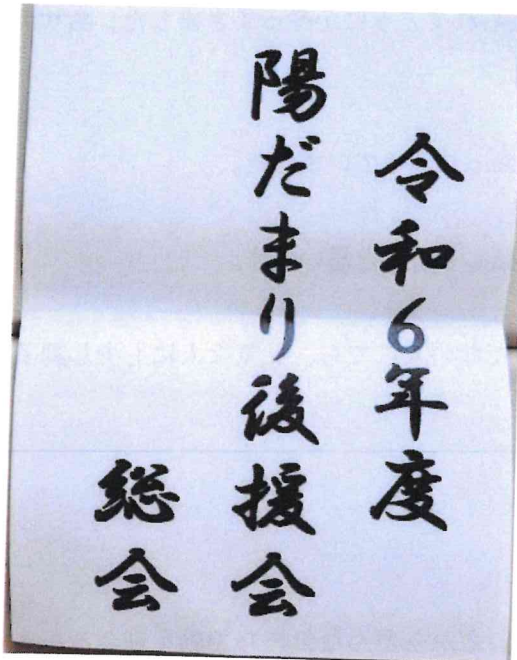 令和6年度
陽だまり後援会
総会